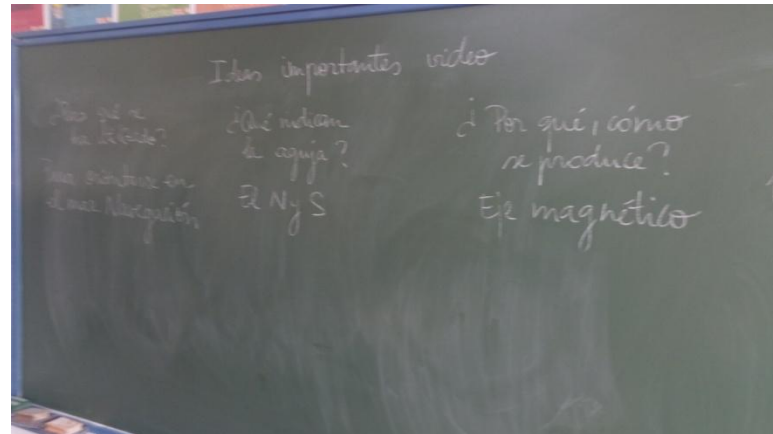 Ideas importantes video
¿Para qué se
ha utilizado?
Para orientarse en
el mar Navegación
¿Qué indican
la aguja?
El N y S
¿Por qué, cómo
se produce?
Eje magnético